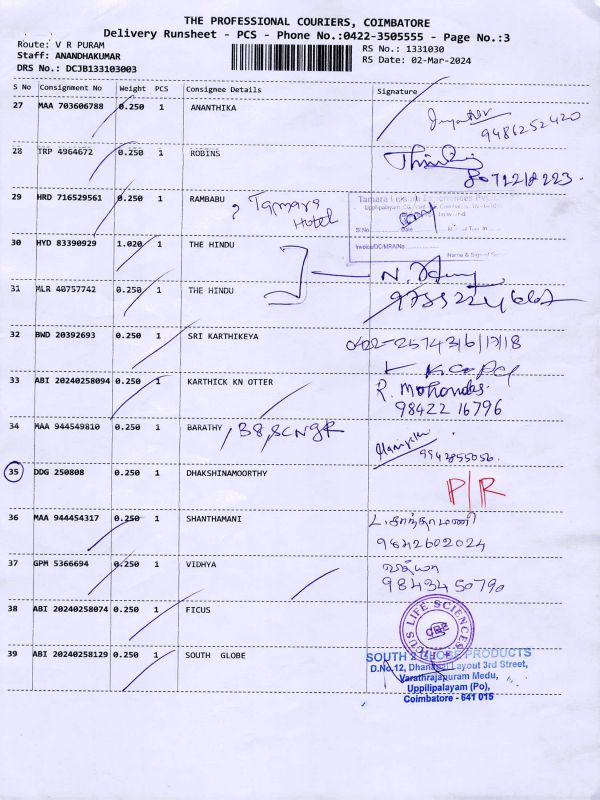 THE PROFESSIONAL COURIERS, COIMBATORE
Delivery Runsheet - PCS - Phone No.:0422-3505555 - Page No.:3
Route: V R PURAM
RS No.: 1331030
Staff: ANANDHAKUMAR
RS Date: 02-Mar-2024
DRS No.: DCJB133103003
S No Consignment No Weight PCS Consignee Details Signature
27 MAA 703606788 0.250 1 ANANTHIKA
9486252420
28 TRP 4964672 0.250 1 ROBINS
8072218223.
29 HRD 716529561 0.250 1 RAMBABU , Tamara Hotel
Tamara Leisure Experiences Pvt
30 HYD 83390929 1.020 1 THE HINDU
31 MLR 40757742 0.250 1 THE HINDU
32 BWD 20392693 0.250 1 SRI KARTHIKEYA
0422-2574316/17/18
33 ABI 20240258094 0.250 1 KARTHICK KN OTTER
R. Mohandas.
98422 16796
34 MAA 944549810 0.250 1 BARATHY
9942855056.
35 DDG 250808 0.250 1 DHAKSHINAMOORTHY
P/R
36 MAA 944454317 0.250 1 SHANTHAMANI
சாந்தாமணி
9842602024
37 GPM 5366694 0.250 1 VIDHYA
வித்யா
9843450790
38 ABI 20240258074 0.250 1 FICUS
FICUS LIFE SCIENCES
39 ABI 20240258129 0.250 1 SOUTH GLOBE
SOUTH GLOBE PRODUCTS
D.No.12, Dhanapal Layout 3rd Street,
Varathrajapuram Medu,
Uppilipalayam (Po),
Coimbatore - 641 015